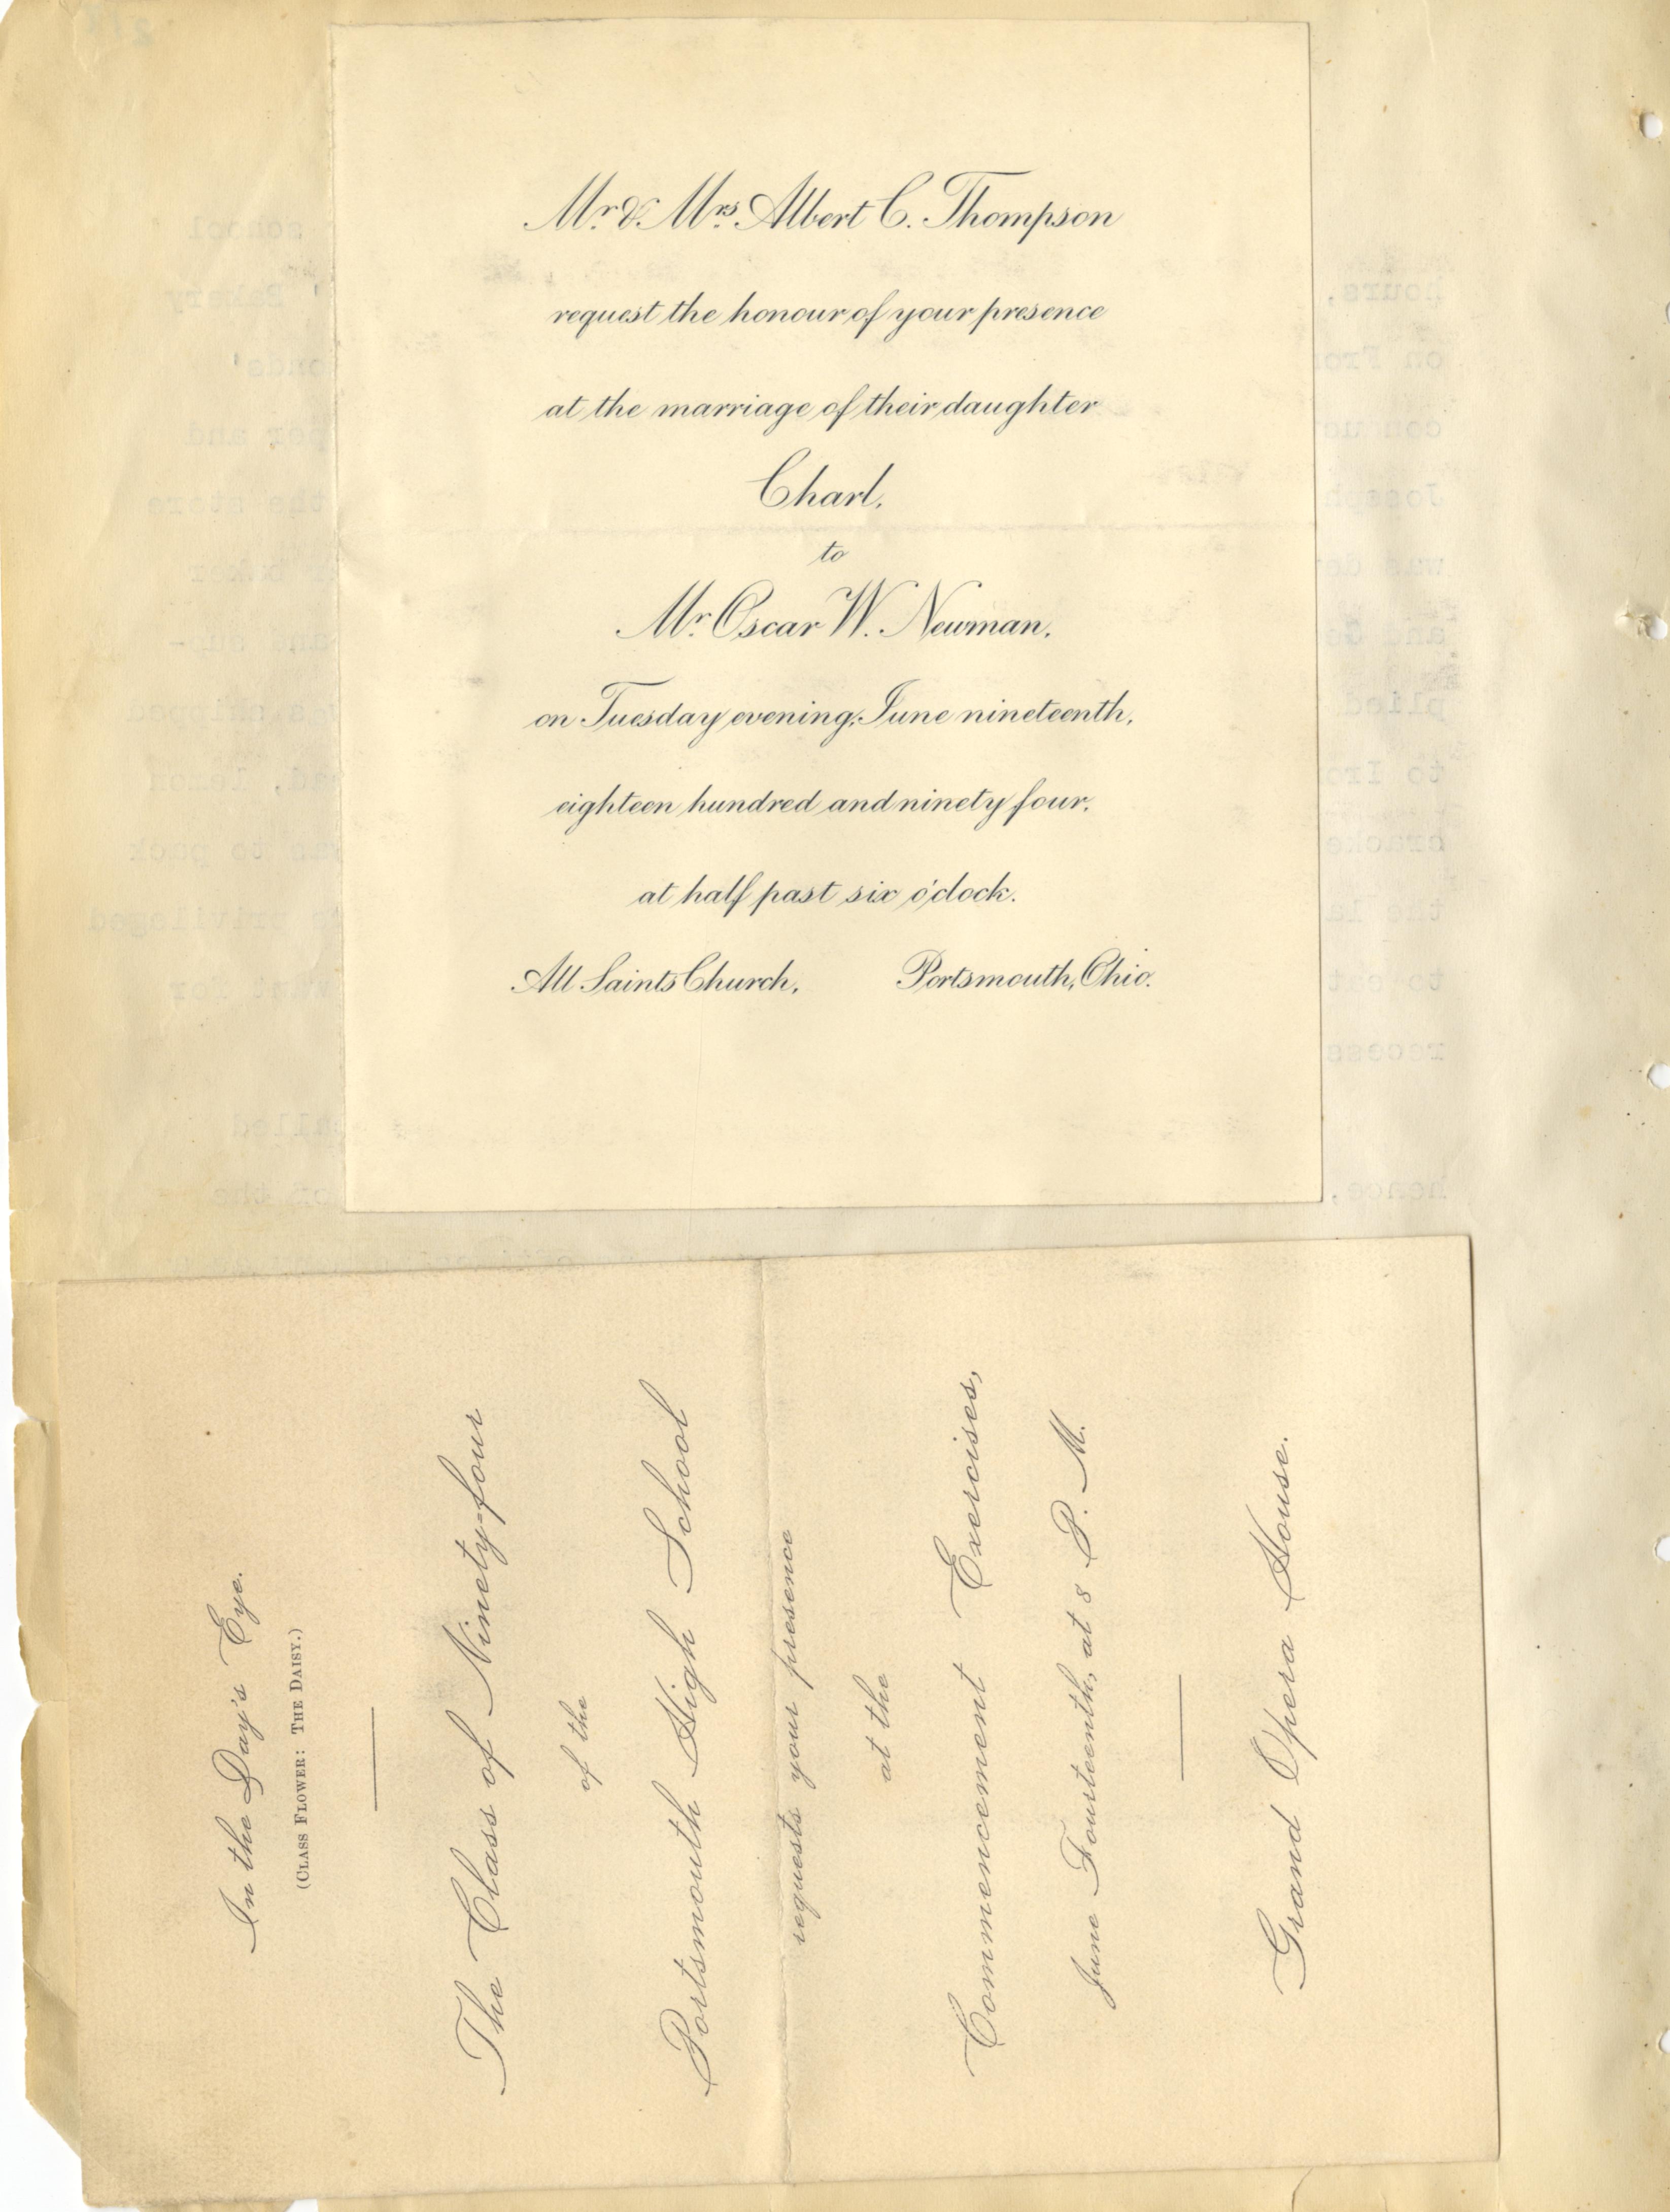 Mr. & Mrs. Albert C. Thompson
request the honour of your presence
at the marriage of their daughter
Charl,
to
Mr. Oscar W. Newman,
on Tuesday evening, June nineteenth,
eighteen hundred and ninety four,
at half past six o'clock.
All Saints Church, Portsmouth, Ohio.
In the Day's Eye.
(CLASS FLOWER: THE DAISY.)
The Class of Ninety-four
of the
Portsmouth High School
requests your presence
at the
Commencement Exercises,
June Fourteenth, at 8 P. M.
Grand Opera House.